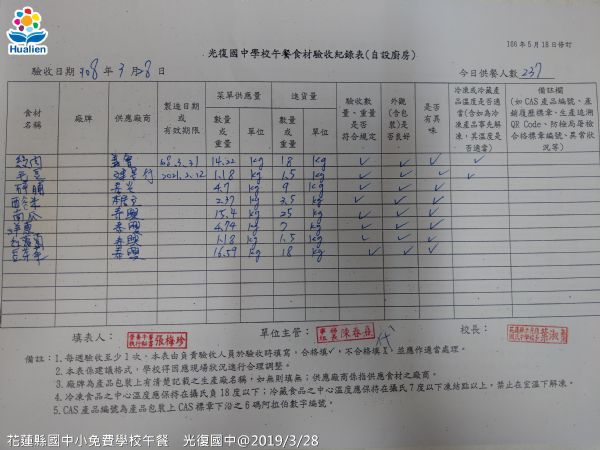 Hualien
光復國中學校午餐食材驗收紀錄表(自設廚房)
106年5月18日修訂
驗收日期 108年3月28日
今日供餐人數 237
食材名稱 廠牌 供應廠商 製造日期或有效期限 菜單供應量 進貨量 驗收數量、重量是否符合規定 外觀(含包裝)是否良好 是否有異味 冷凍或冷藏產品溫度是否適當(含如為冷凍產品事先解凍,其溫度是否適當) 備註欄(如CAS產品編號、產銷履歷標章、生產追溯QR Code、防檢局屠檢合格標章編號、異常狀況等)
數量或重量 單位 數量或重量 單位
絞肉 14.22 kg 18 kg ✓ ✓ ✓ ✓
毛豆 行 2021.2.12 1.18 kg 1.5 kg ✓ ✓ ✓ ✓
4.7 kg 9 kg ✓ ✓ ✓
西谷米 2.37 kg 3.5 kg ✓ ✓ ✓
南瓜 春興 15.4 kg 25 kg ✓ ✓ ✓
洋蔥 春興 4.74 kg 7 kg ✓ ✓ ✓
紅蘿蔔 春興 1.18 kg 1.5 kg ✓ ✓ ✓
春興 16.59 kg 18 kg ✓ ✓ ✓
填表人: 張梅珍 單位主管: 陳春嘉 代 校長: 葉淑
備註:1.每週驗收至少1次,本表由負責驗收人員於驗收時填寫,合格填✓,不合格填X,並應作適當處理。
2.本表係建議格式,學校得因應現場狀況進行合理調整。
3.廠牌為產品包裝上有清楚記載之生產廠名稱,如無則填無;供應廠商係指供應食材之廠商。
4.冷凍食品之中心溫度應保持在攝氏負18度以下;冷藏食品之中心溫度應保持在攝氏7度以下凍結點以上,禁止在室溫下解凍。
5.CAS產品編號為產品包裝上CAS標章下沿之6碼阿拉伯數字編號。
花蓮縣國中小免費學校午餐 光復國中@2019/3/28